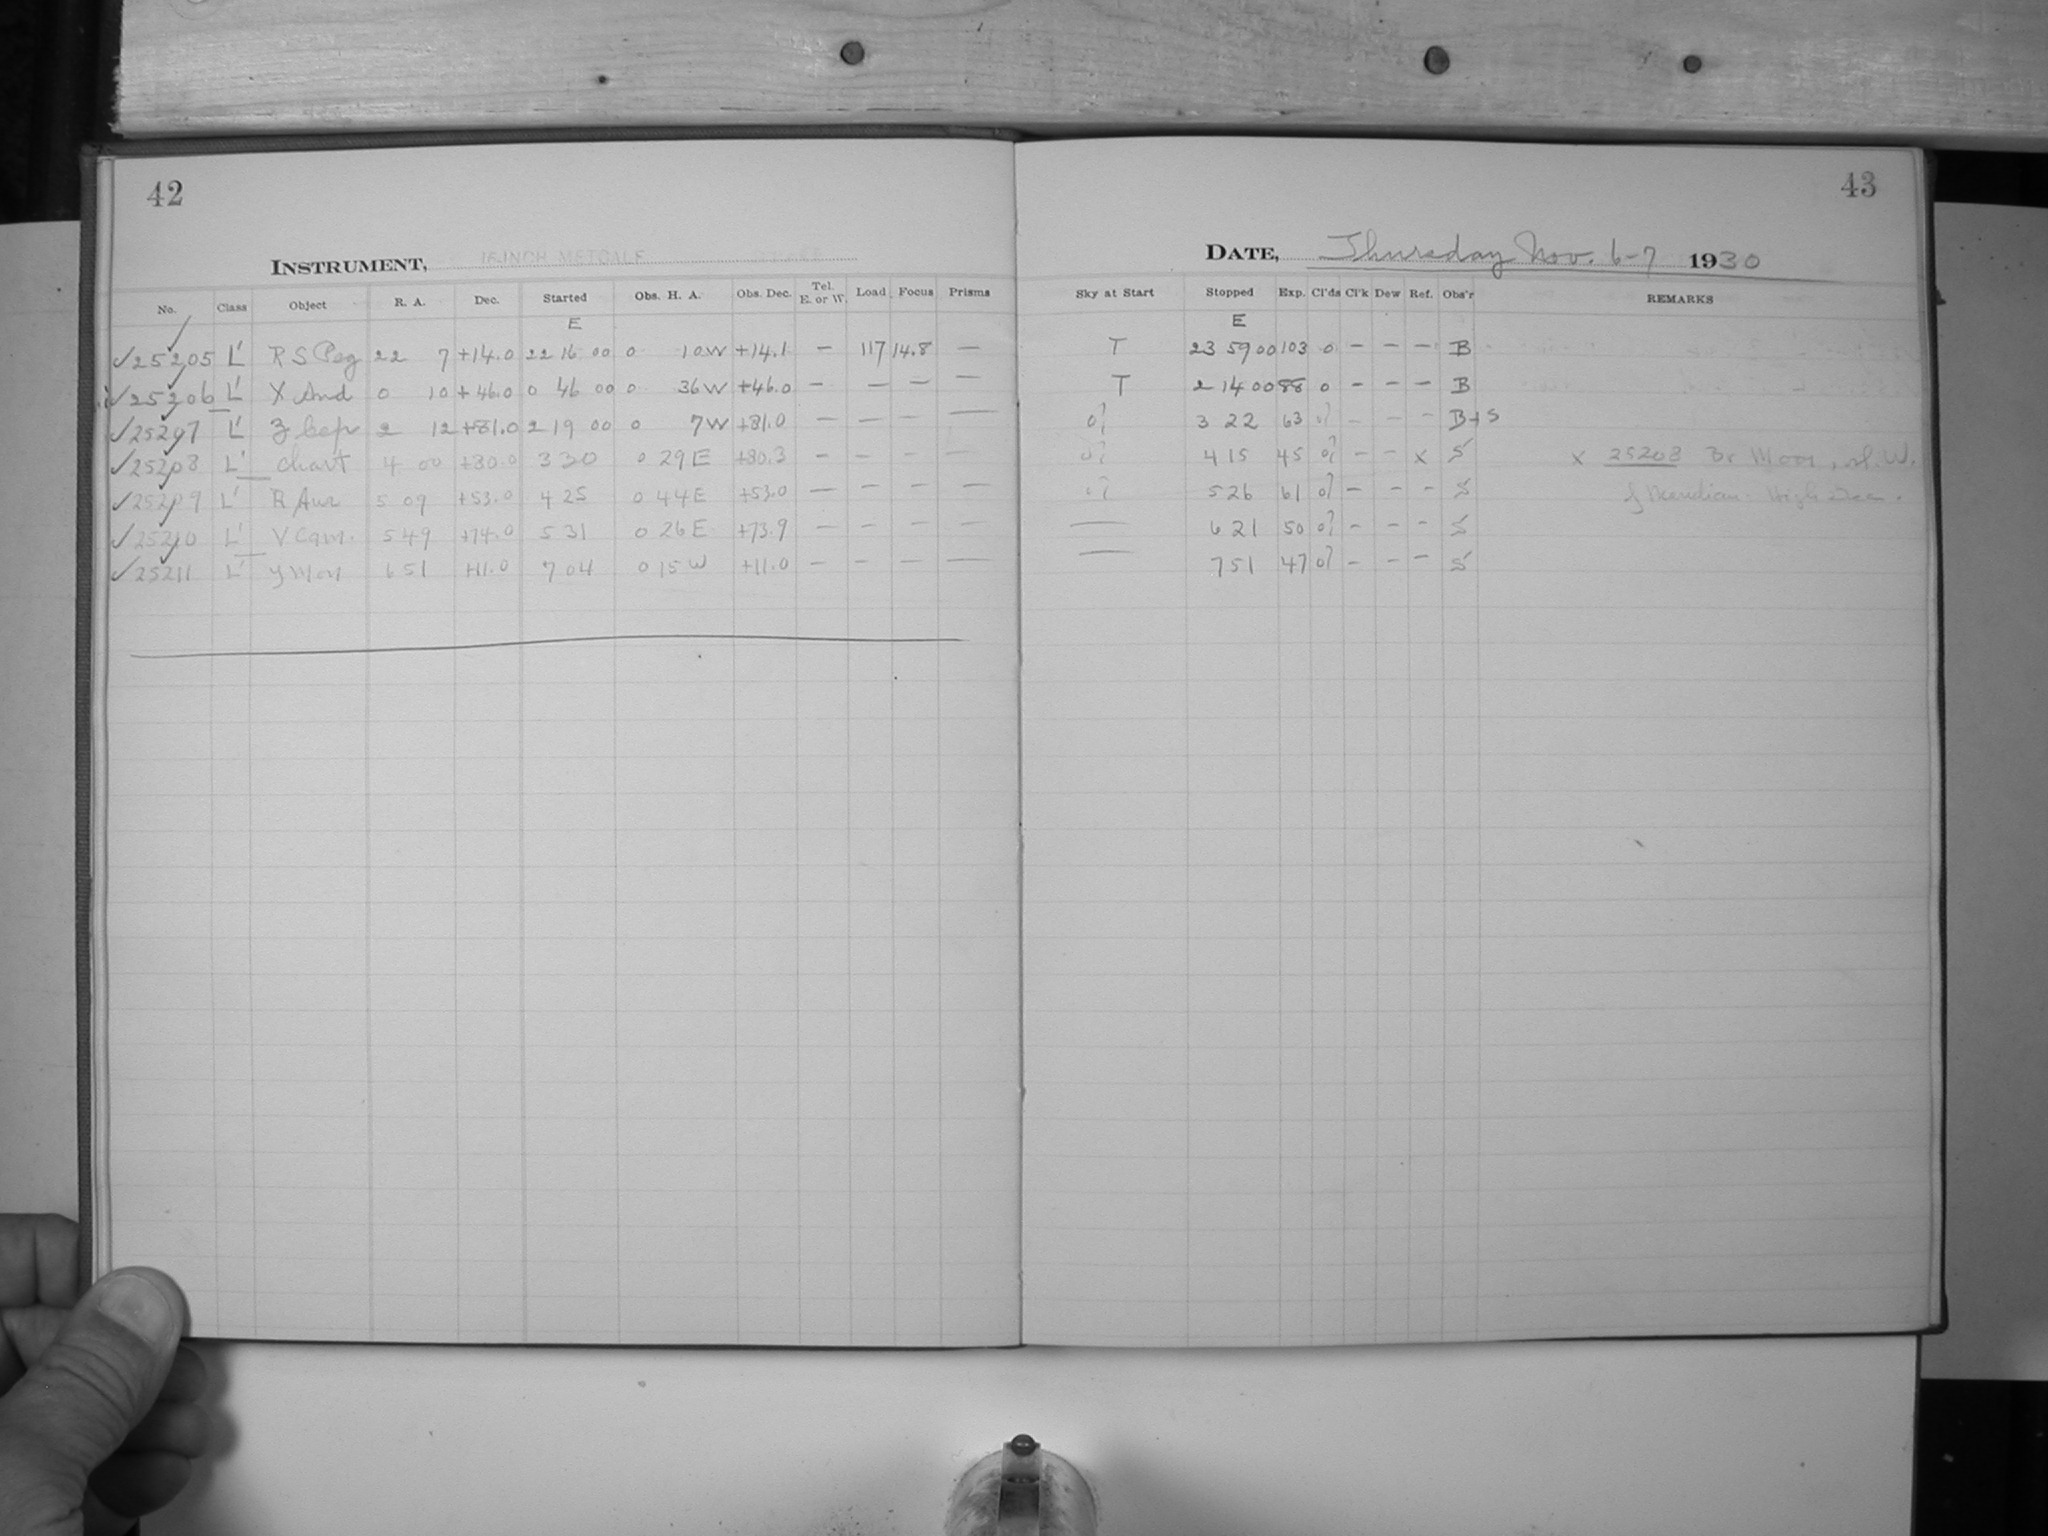 42
INSTRUMENT, 16-INCH METCALF
No. Class Object R. A. Dec. Started Obs. H. A. Obs. Dec. Tel. E. or W. Load Focus Prisms
E
✓25205 L' RS Peg 22 7 +14.0 22 16 00 0 10W +14.1 — 117 14.8 —
✓25206 L' X And 0 10 +46.0 0 46 00 0 36W +46.0 — — — —
✓25207 L' Z Cep 2 12 +81.0 2 19 00 0 7W +81.0 — — — —
✓25208 L' Chart 4 00 +80.0 3 30 0 29E +80.3 — — — —
✓25209 L' R Aur 5 09 +53.0 4 25 0 44E +53.0 — — — —
✓25210 L' V Cam. 5 49 +74.0 5 31 0 26E +73.9 — — — —
✓25211 L' Y Mon 6 51 +11.0 7 04 0 15W +11.0 — — — —
43
DATE, Thursday Nov. 6-7 1930
Sky at Start Stopped Exp. Cl'ds Cl'k Dew Ref. Obs'r REMARKS
E
T 23 59 00 103 0 — — — B
T 2 14 00 88 0 — — — B
0? 3 22 63 0? — — — B+S
0? 4 15 45 0? — — x S x 25208 Br Moon, W.
0? 5 26 61 0? — — — S Meridian. High Dec.
— 6 21 50 0? — — — S
— 7 51 47 0? — — — S